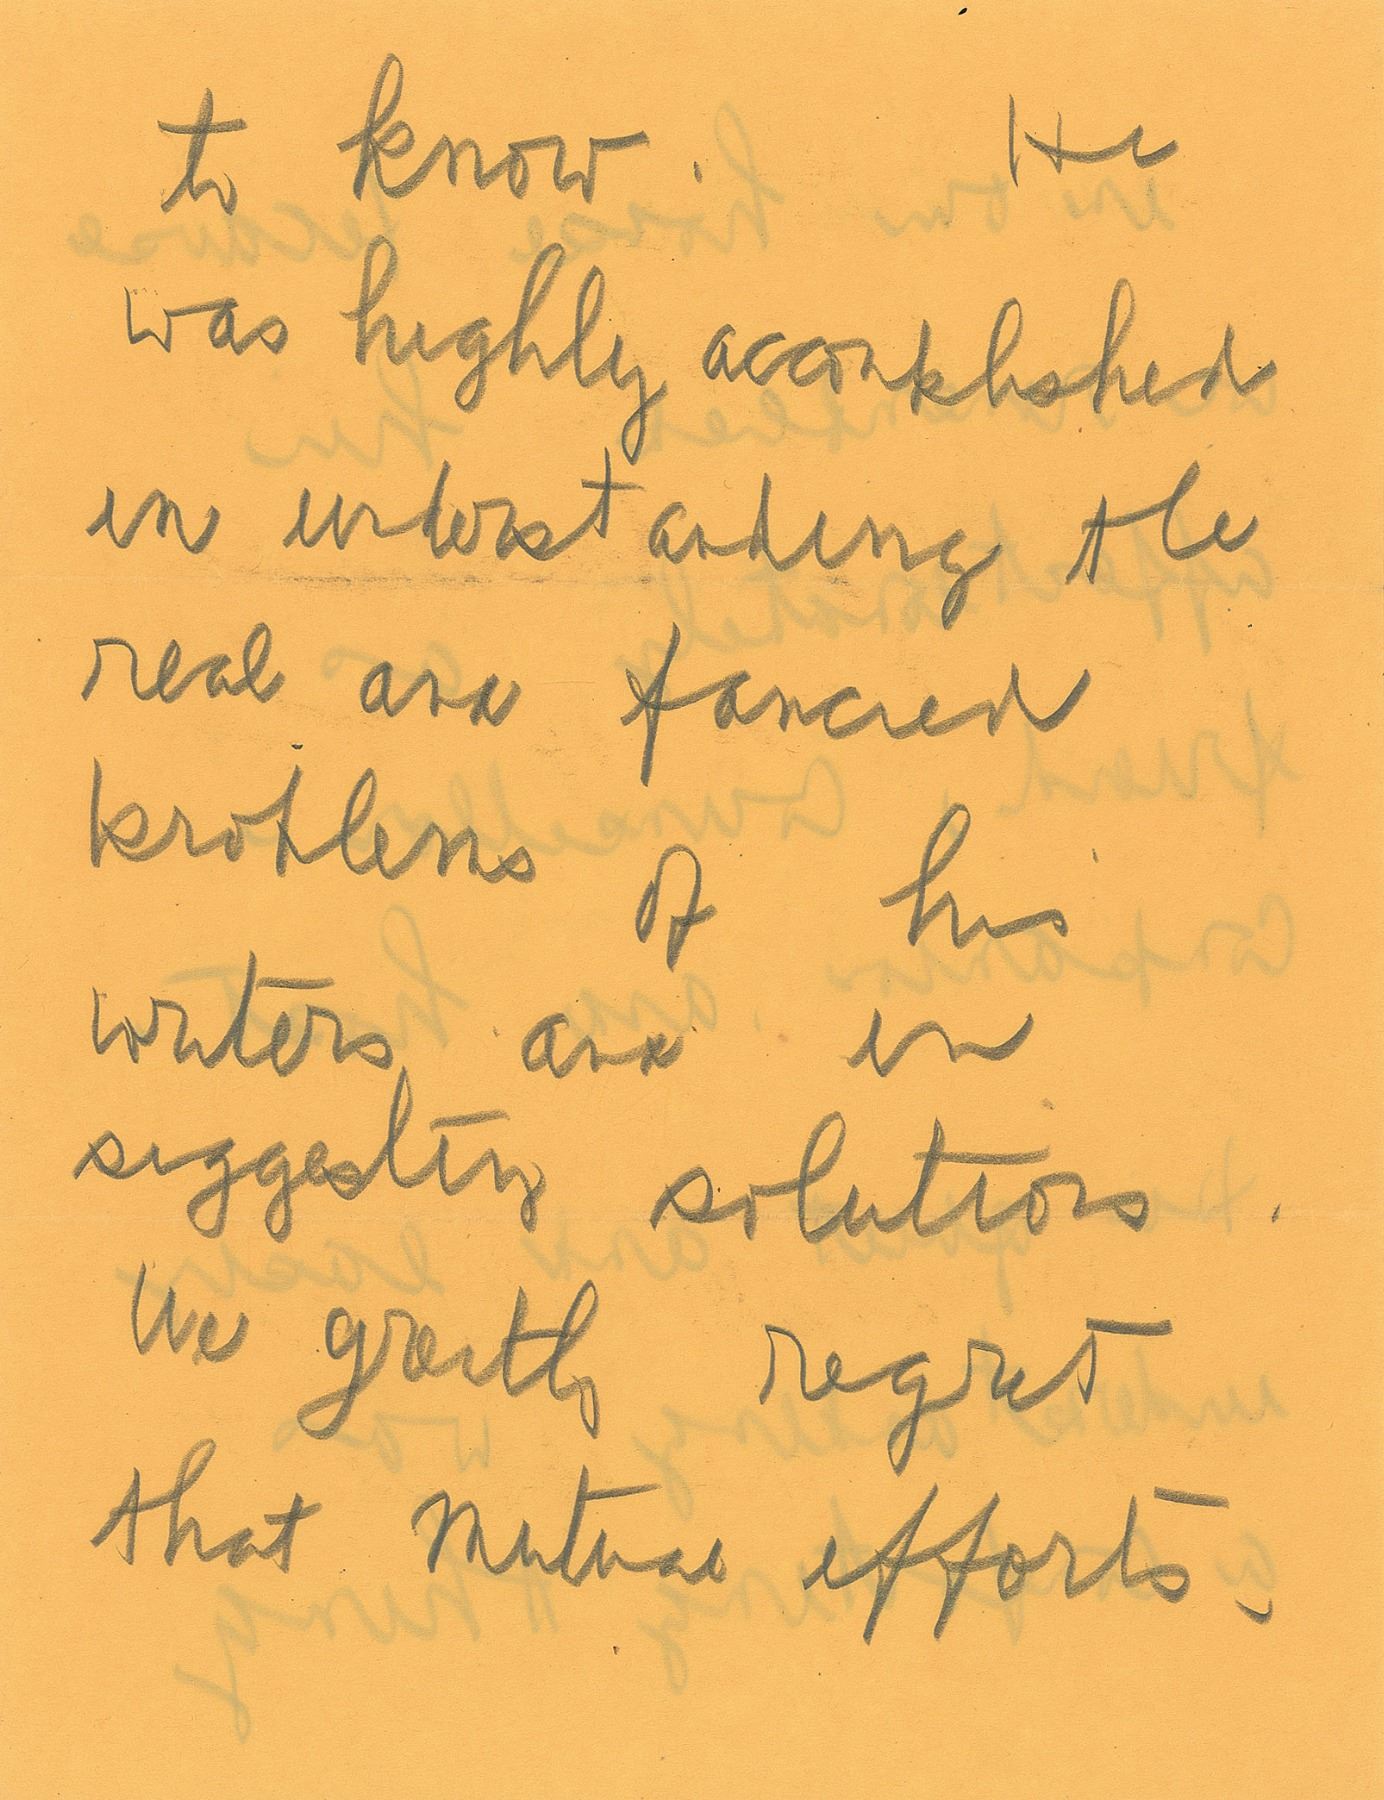 to know. He
was highly accomplished
in understanding the
real and fancied
problems of his
writers and in
suggesting solutions.
We greatly regret
that mutual efforts